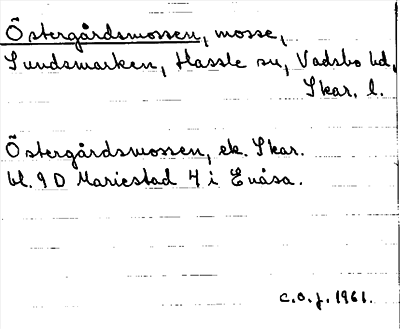 Östergårdsmossen, mosse,
Sundsmarken, Hassle sn, Vadsbo hd,
Skar. l.
Östergårdsmossen, ek. Skar.
bl. 9 D Mariestad 4 i Enåsa.
C.O.J. 1961.